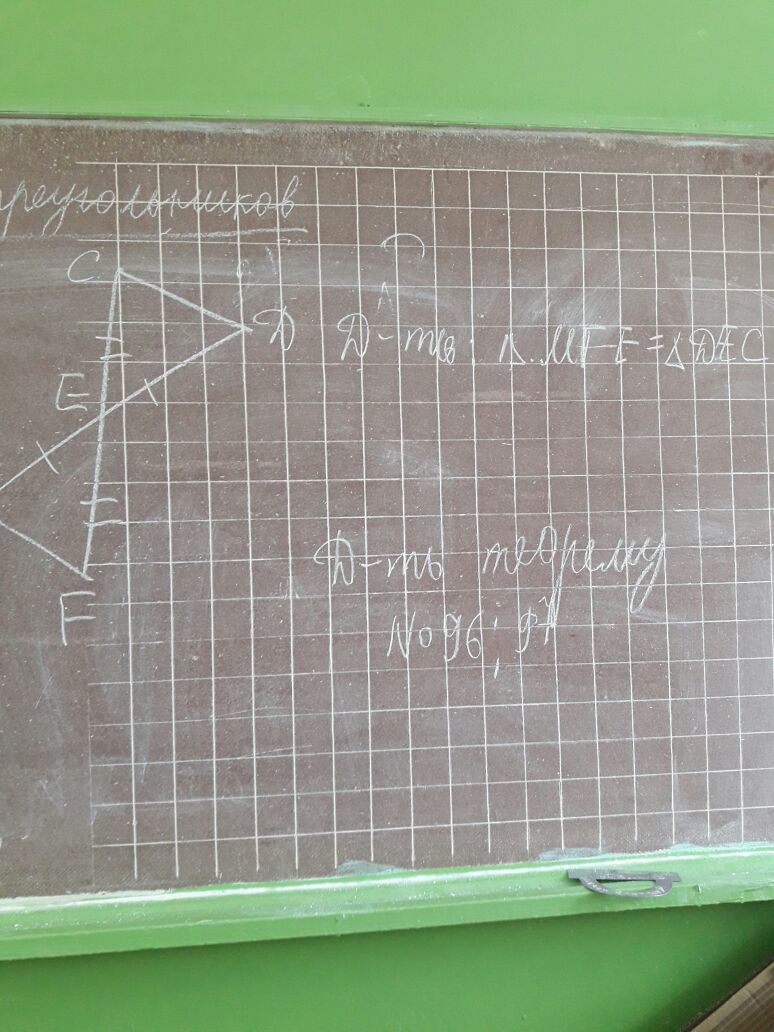 треугольников
C
D
Д-ть △ MFE = △ DEC
E
F
Д-ть теорему
№ 96; 97